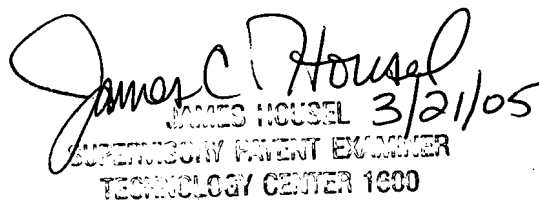 James C. Housel
JAMES HOUSEL 3/21/05
SUPERVISORY PATENT EXAMINER
TECHNOLOGY CENTER 1600